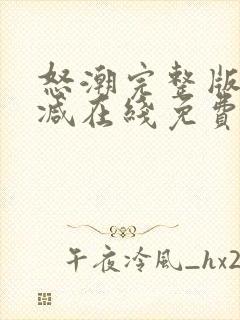 怒潮完整版
減在綫免費
午夜冷風_hx2